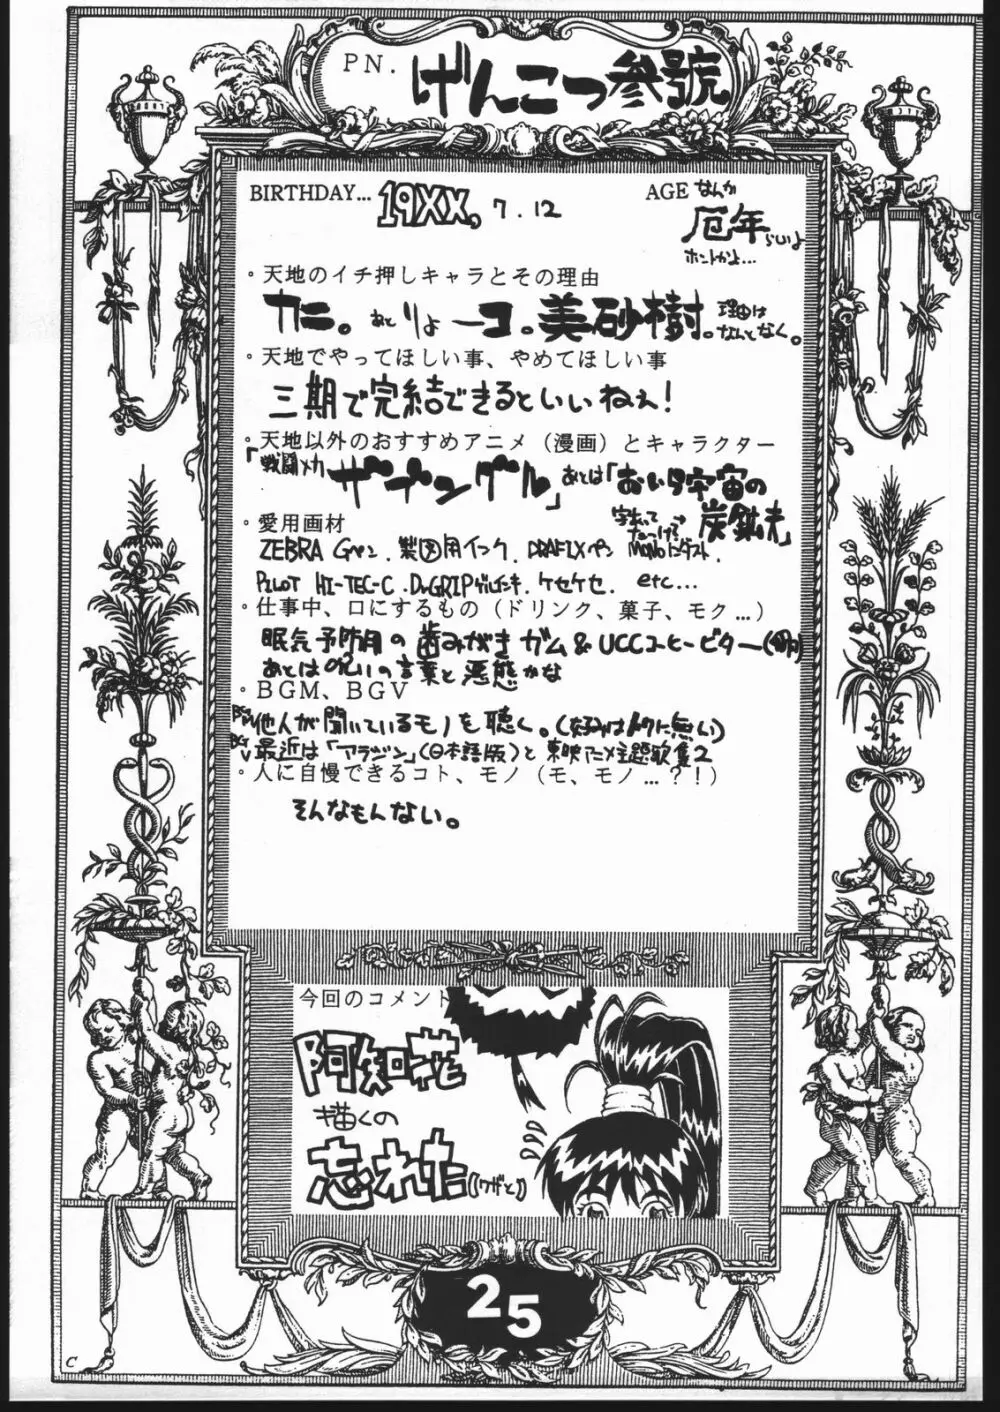 PN. げんこつ参號
BIRTHDAY... 19XX, 7.12
AGE なんか
厄年らしいよ
ホントかよ…
・天地のイチ押しキャラとその理由
カニ。あとりょーコ。美砂樹。理由は
なんとなく。
・天地でやってほしい事、やめてほしい事
三期で完結できるといいねぇ!
・天地以外のおすすめアニメ(漫画)とキャラクター
「戦闘メカ ザブングル」あとは「おいら宇宙の
炭鉱夫」
・愛用画材
ZEBRA Gペン. 製図用インク. DRAFIXペン
PILOT HI-TEC-C. Dr.GRIPゲルインキ. ケセケセ. etc...
・仕事中、口にするもの(ドリンク、菓子、モク…)
眠気予防用の歯みがきガム&UCCコーヒービター
あとは呪いの言葉と悪態かな
・BGM、BGV
BGM/他人が聞いているモノを聴く。(好みは特に無い)
BGV 最近は「アラジン」(日本語版)と東映アニメ主題歌集2
・人に自慢できるコト、モノ(モ、モノ…?!)
そんなもんない。
今回のコメント
阿知花
描くの
忘れた((ワザと))
25
C